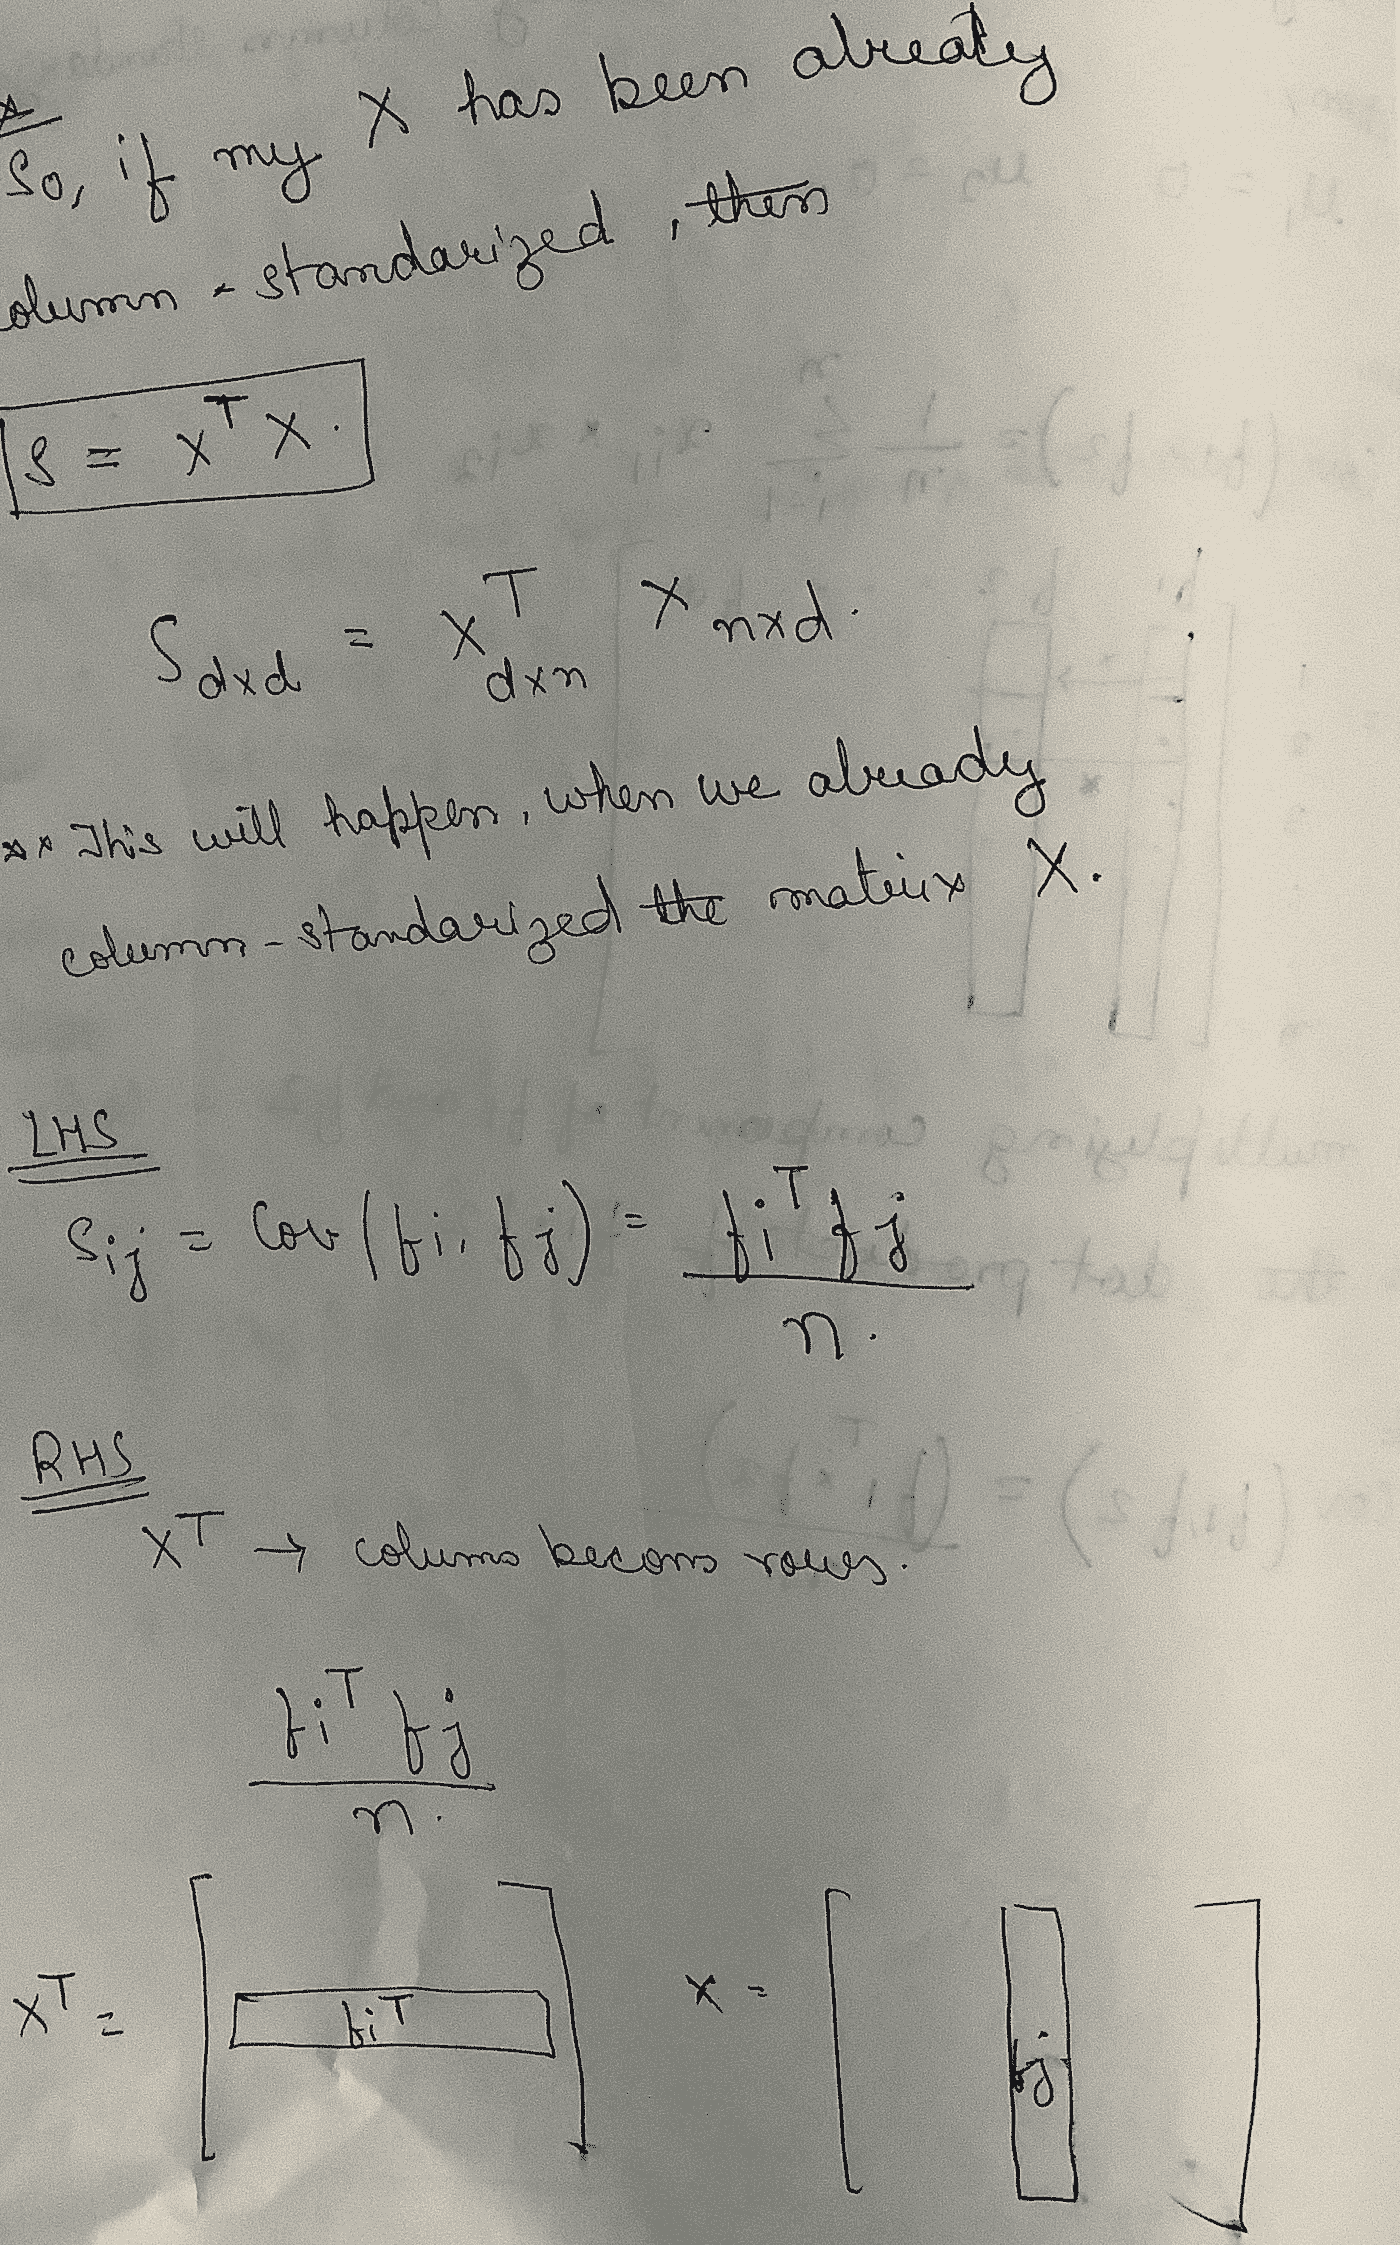 So, if my X has been already
olumn - standarized, then
S = X^T X.
S_dxd = X^T_dxn X_nxd.
** This will happen, when we already
column - standarized the matrix X.
LHS
S_ij = Cov(fi, fj) = fi^T fj / n.
RHS
X^T → colums becoms rows.
fi^T fj / n.
X^T = [ fi^T ] X = [ fj ]